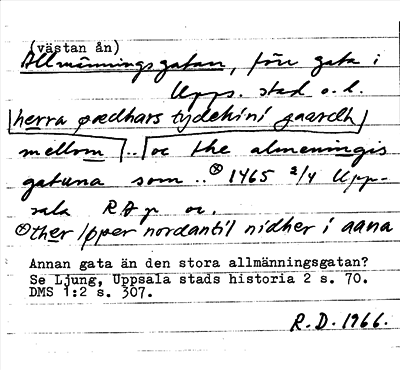 (västan ån)
Allmänningsgatan, förr gata i
Upps. stad o. l.
herra pædhars tydekini gaardh
mellom .. oc the almenningis
gatuna som .. ⊗ 1465 2/4 Upp-
sala RAp or.
⊗ ther løper nordantil nidher i aana
Annan gata än den stora allmänningsgatan?
Se Ljung, Uppsala stads historia 2 s. 70.
DMS 1:2 s. 307.
R.D. 1966.